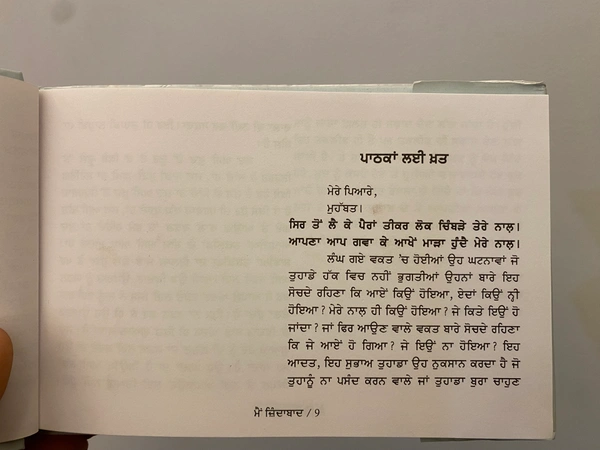 ਪਾਠਕਾਂ ਲਈ ਖ਼ਤ
ਮੇਰੇ ਪਿਆਰੇ,
ਮੁਹੱਬਤ।
ਸਿਰ ਤੋਂ ਲੈ ਕੇ ਪੈਰਾਂ ਤੀਕਰ ਲੋਕ ਚਿੰਬੜੇ ਤੇਰੇ ਨਾਲ਼।
ਆਪਣਾ ਆਪ ਗਵਾ ਕੇ ਆਖੇਂ ਮਾੜਾ ਹੁੰਦੈ ਮੇਰੇ ਨਾਲ਼।
ਲੰਘ ਗਏ ਵਕਤ 'ਚ ਹੋਈਆਂ ਉਹ ਘਟਨਾਵਾਂ ਜੋ
ਤੁਹਾਡੇ ਹੱਕ ਵਿਚ ਨਹੀਂ ਭੁਗਤੀਆਂ ਉਹਨਾਂ ਬਾਰੇ ਇਹ
ਸੋਚਦੇ ਰਹਿਣਾ ਕਿ ਆਏਂ ਕਿਉਂ ਹੋਇਆ, ਏਦਾਂ ਕਿਉਂ ਨ੍ਹੀ
ਹੋਇਆ? ਮੇਰੇ ਨਾਲ਼ ਹੀ ਕਿਉਂ ਹੋਇਆ? ਜੇ ਕਿਤੇ ਇਉਂ ਹੋ
ਜਾਂਦਾ? ਜਾਂ ਫਿਰ ਆਉਣ ਵਾਲੇ ਵਕਤ ਬਾਰੇ ਸੋਚਦੇ ਰਹਿਣਾ
ਕਿ ਜੇ ਆਏਂ ਹੋ ਗਿਆ? ਜੇ ਇਉਂ ਨਾ ਹੋਇਆ? ਇਹ
ਆਦਤ, ਇਹ ਸੁਭਾਅ ਤੁਹਾਡਾ ਉਹ ਨੁਕਸਾਨ ਕਰਦਾ ਹੈ ਜੋ
ਤੁਹਾਨੂੰ ਨਾ ਪਸੰਦ ਕਰਨ ਵਾਲੇ ਜਾਂ ਤੁਹਾਡਾ ਬੁਰਾ ਚਾਹੁਣ
ਮੈਂ ਜ਼ਿੰਦਾਬਾਦ / 9